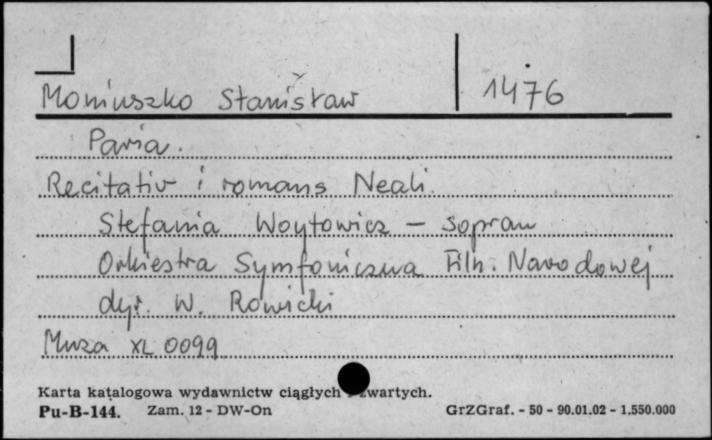 Moniuszko Stanisław 1476
Paria.
Recitativ i romans Neali.
Stefania Woytowicz – sopran
Orkiestra Symfoniczna Filh. Narodowej
dyr. W. Rowicki
Muza XL 0099
Karta katalogowa wydawnictw ciągłych zwartych.
Pu-B-144. Zam. 12 - DW-On GrZGraf. - 50 - 90.01.02 - 1.550.000